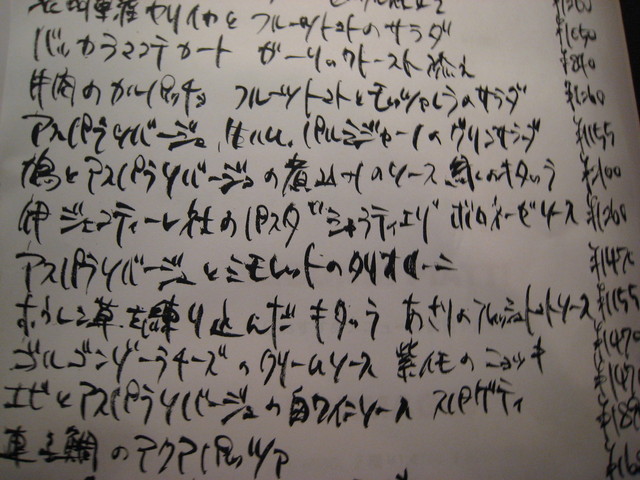 ヤリイカと フルーツトマトのサラダ
バッカラマンテカート ガーリックトースト添え ¥840
牛肉のカルパッチョ フルーツトマトとモッツァレラのサラダ ¥1260
アスパラソバージュ、生ハム、パルミジャーノのグリーンサラダ ¥1155
鳩とアスパラソバージュの煮込みのソース のキタッラ ¥2100
伊 ジェンティーレ社のパスタ ボロネーゼソース ¥1260
アスパラソバージュとミモレットのタリオリーニ ¥1470
ほうれん草を練り込んだキタッラ あさりのフレッシュトマトソース ¥1155
ゴルゴンゾーラチーズのクリームソース 紫イモのニョッキ ¥1470
エビとアスパラソバージュの白ワインソース スパゲティ
真子鯛のアクアパッツァ